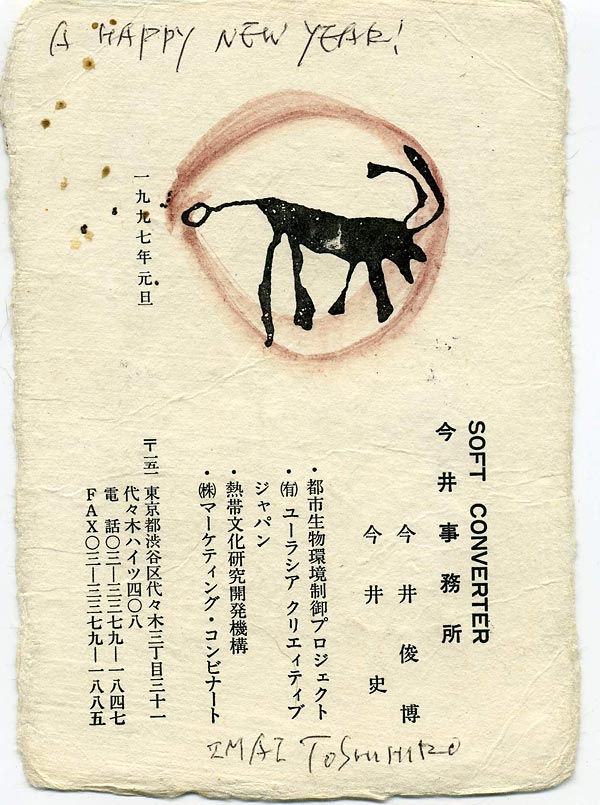 A HAPPY NEW YEAR!
一九九七年元旦
SOFT CONVERTER
今井事務所
今井俊博
今井史
・都市生物環境制御プロジェクト
・㈲ユーラシア クリエィティブ
ジャパン
・熱帯文化研究開発機構
・㈱マーケティング・コンビナート
〒一五一 東京都渋谷区代々木三丁目三十一
代々木ハイツ四〇八
電 話〇三―三三七九―一八四七
FAX〇三―三三七九―一八八五
IMAI TOSHIHIRO